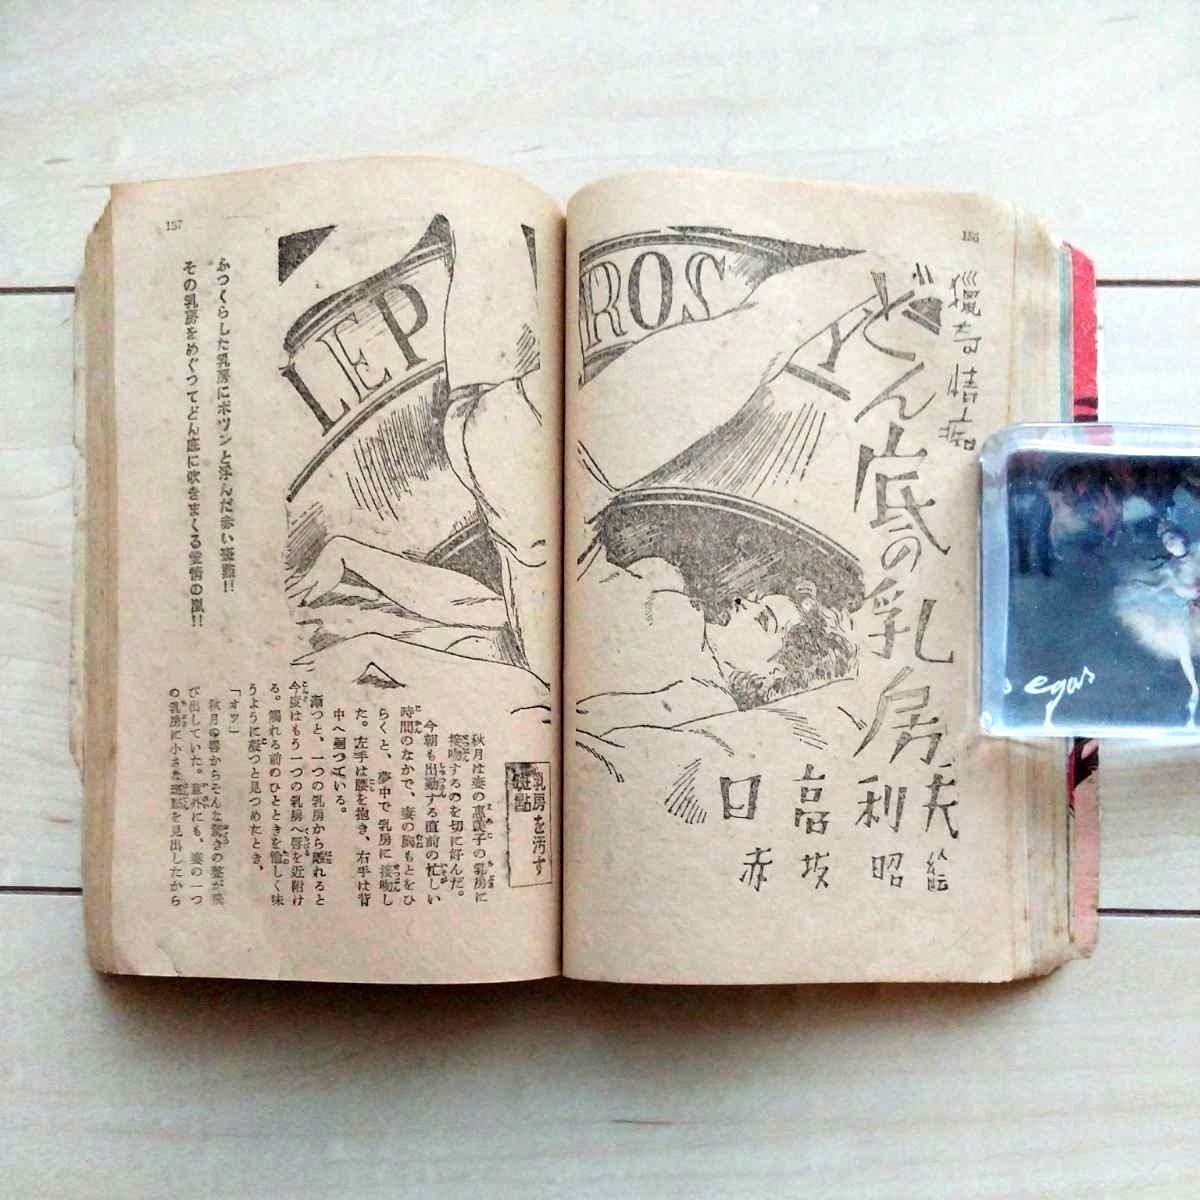 156
猟奇情痴
どん底の乳房
日高利夫
赤坂昭絵
LEPROSY
157
ふつくらした乳房にポツンと浮んだ赤い斑點!!
その乳房をめぐつてどん底に吹きまくる愛情の嵐!!
乳房を汚す
斑點
秋月は妻の恵美子の乳房に
接吻するのを切に好んだ。
今朝も出勤する直前の忙しい
時間のなかで、妻の胸もとをひ
らくと、夢中で乳房に接吻し
た。左手は腰を抱き、右手は背
中へ廻つている。
漸つと、一つの乳房から離れると
今度はもう一つの乳房へ唇を近附け
る。觸れる前のひとときを愉しく味
うように凝つと見つめたとき、
「オッ」
秋月の唇からそんな驚きの聲が飛
び出していた。意外にも、妻の一つ
の乳房に小さな斑點を見出したから
egas